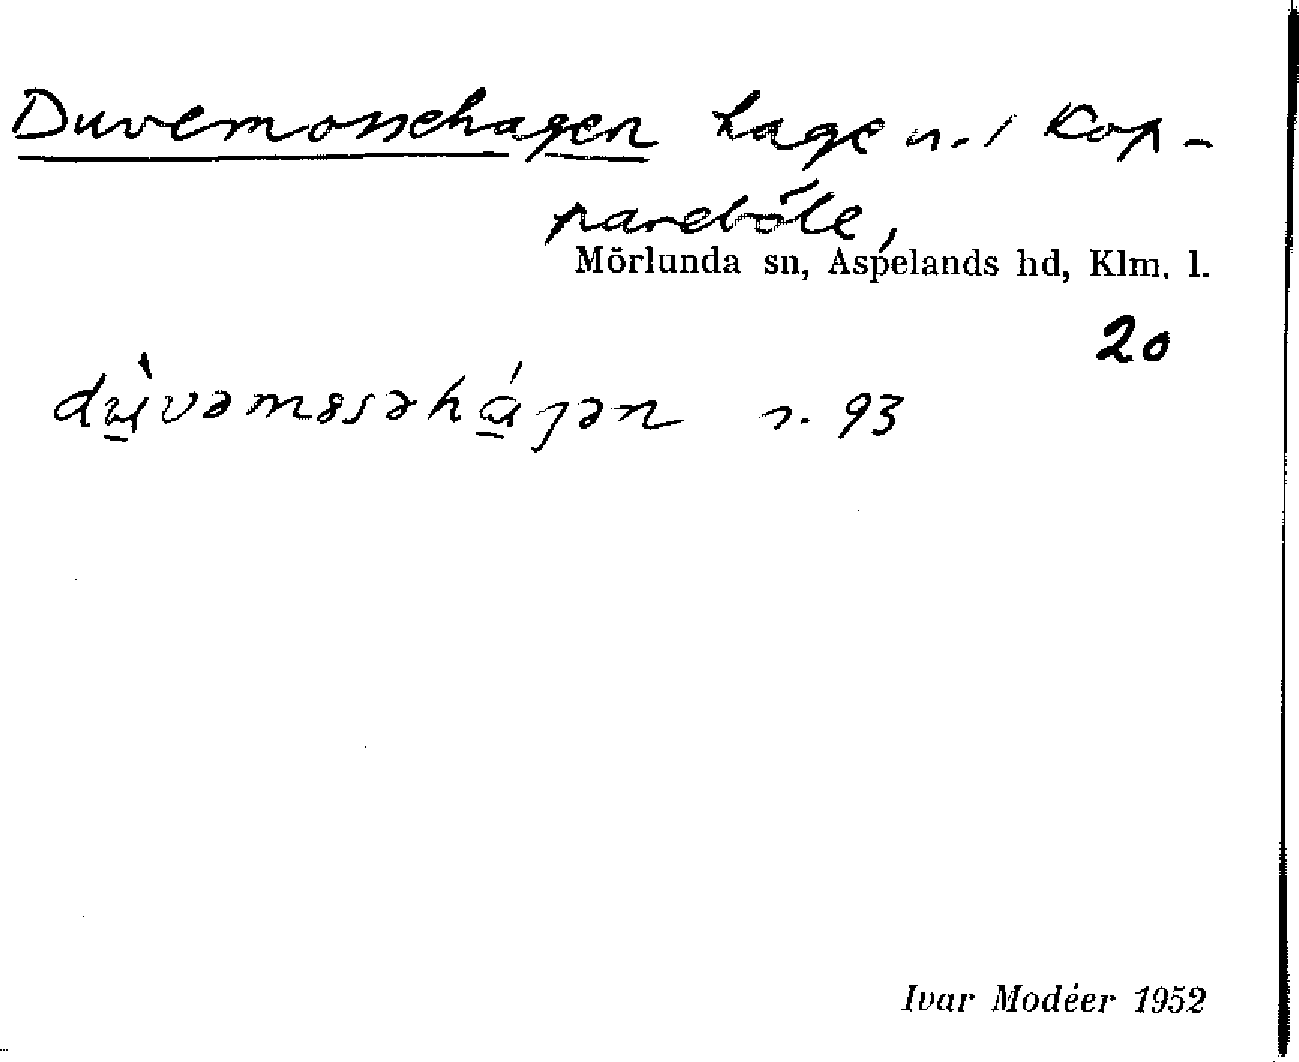 Duvemossehagen hage u. / Kop-
pareböle,
Mörlunda sn, Aspelands hd, Klm. l.
20
du̠̍vəmɞsəhá̠ɡən r. 93
Ivar Modéer 1952